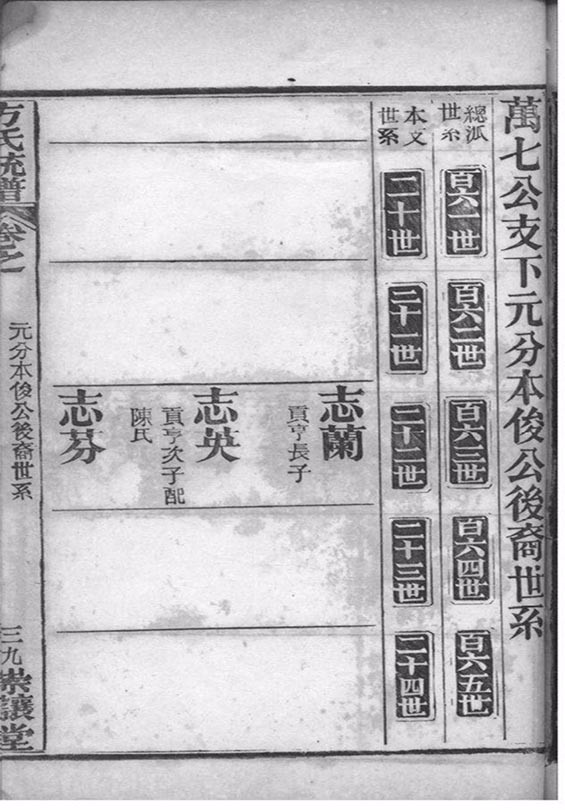 萬七公支下元分本俊公後裔世系
總派世系
百六一世
百六二世
百六三世
百六四世
百六五世
本支世系
二十世
二十一世
二十二世
二十三世
二十四世
志蘭
貢亨長子
志英
貢亨次子配
陳氏
志芬
方氏統譜
卷之
元分本俊公後裔世系
三九
崇讓堂